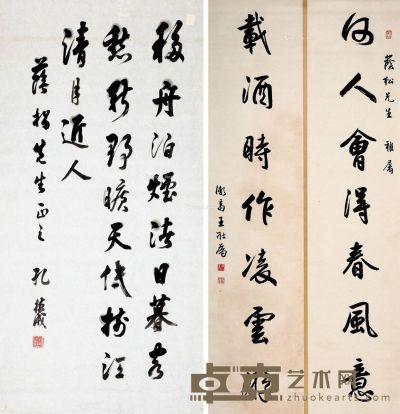 何人會得春風意
蔭松先生 雅屬
載酒時作凌雲游
王壯為
移舟泊煙渚日暮客
愁新野曠天低樹江
清月近人
蔭松先生正之 孔德成
艺术网
www.zhuokearts.com